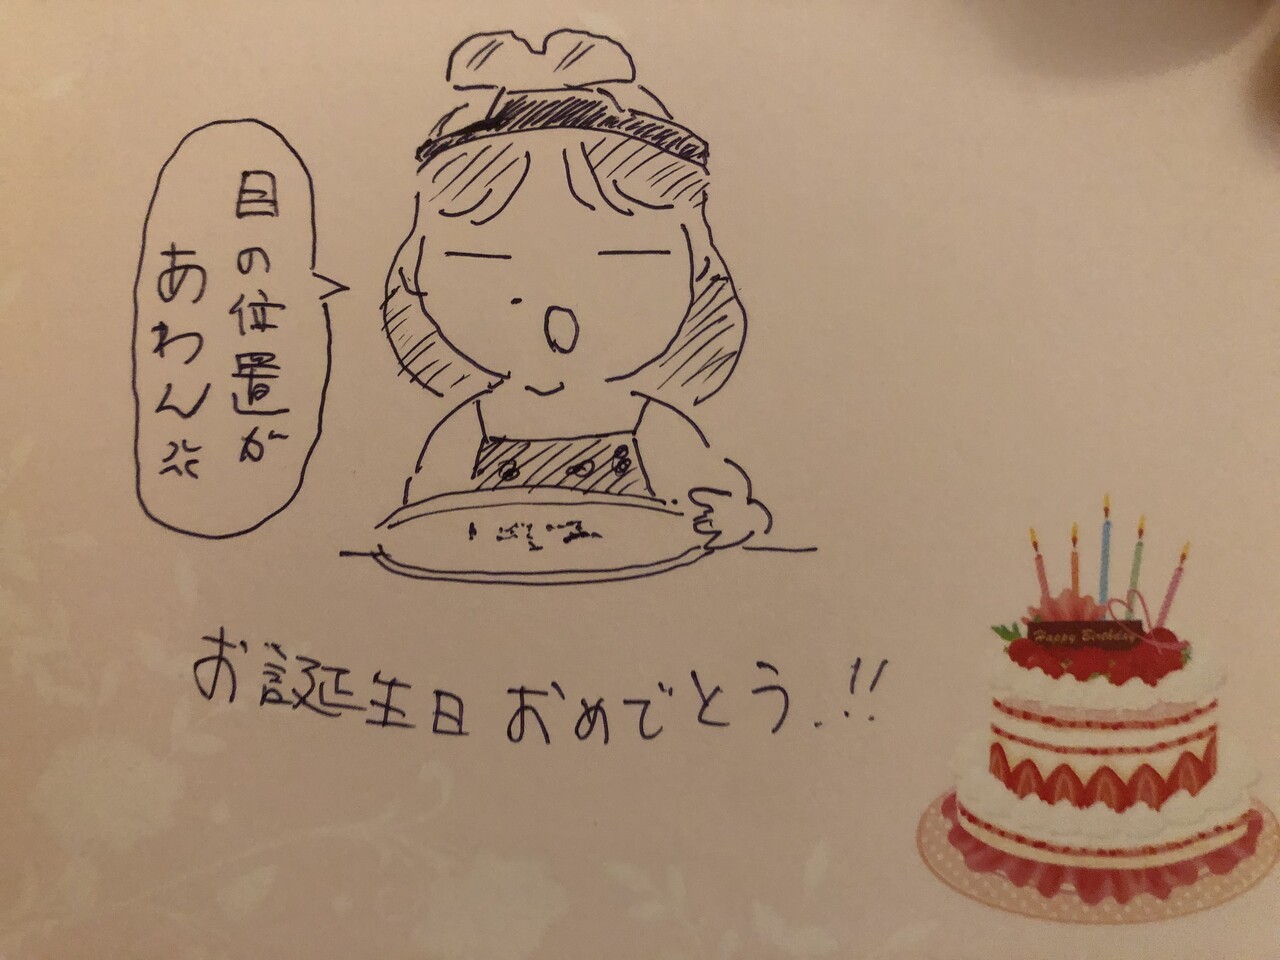 目の位置が
あわん
お誕生日おめでとう!!
Happy Birthday